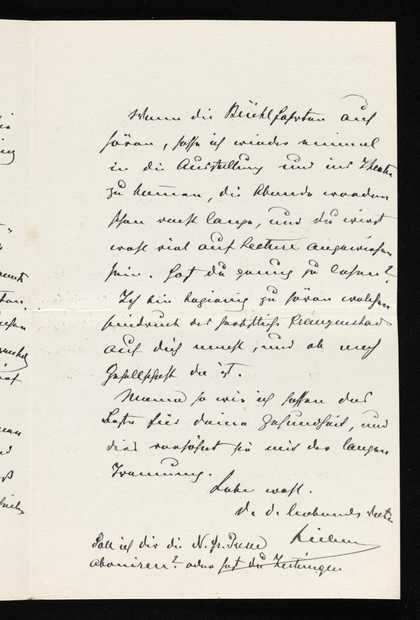 Wenn die auf
hören, hoffe ich wieder einmal
in die Ausstellung und ins Theater
zu kommen, die Abende werden
schon recht lange, und du wirst
wohl viel auf Lecture angewiesen
sein. Hast du genug zu lesen?
Ich bin begierig zu hören welchen
Eindruck das herbstliche Franzensbad
auf dich macht, und ob noch
Gesellschaft da ist.
Mama so wie ich hoffen das
Beste für deine Gesundheit, und
dies versöhnt sie mit der langen
Trennung.
Lebe wohl.
D. d. liebender Vater
Soll ich dir die N. fr. Presse
aboniren? oder hast du Zeitungen